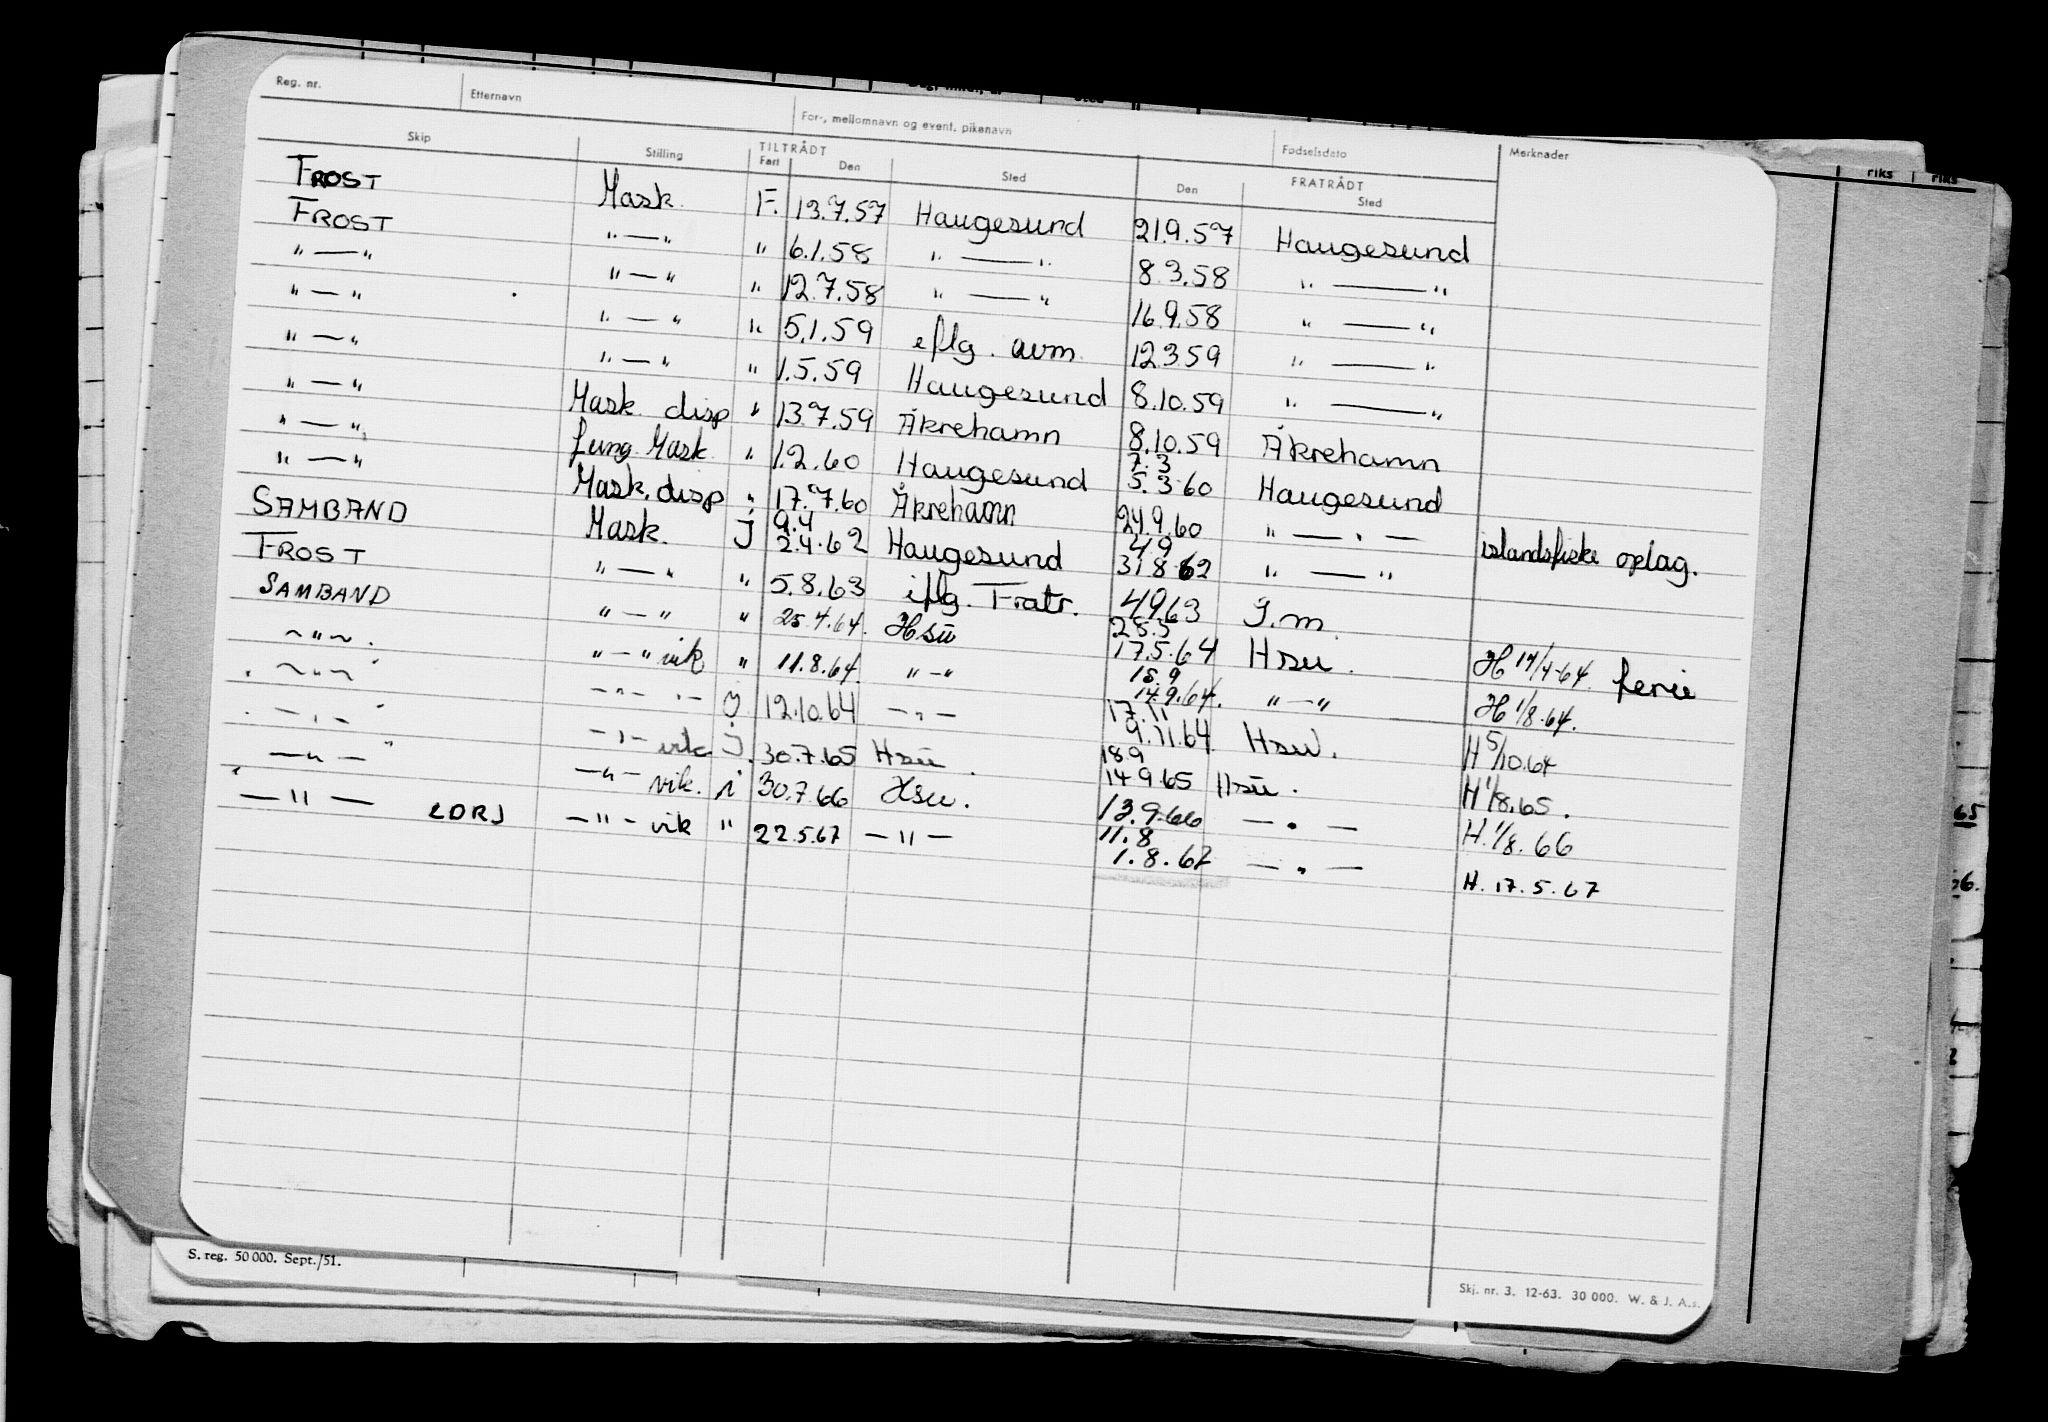 Reg. nr. Etternavn For-, mellomnavn og event. pikenavn Fødselsdato Merknader
Skip Stilling TILTRÅDT Fart Den Sted FRATRÅDT Den Sted
FROST Mask. F. 13.7.57 Haugesund 21.9.57 Haugesund
FROST "—" " 6.1.58 "—" 8.3.58 "—"
"—" "—" " 12.7.58 "—" 16.9.58 "—"
"—" "—" " 5.1.59 eflg. avm. 12.3.59 "—"
"—" "—" " 1.5.59 Haugesund 8.10.59 "—"
"—" Mask. disp " 13.7.59 Åkrehamn 8.10.59 Åkrehamn
"—" fung. Mask. " 1.2.60 Haugesund 7.3 5.3.60 Haugesund
"—" Mask. disp " 17.7.60 Åkrehamn 24.9.60 "—"— islandsfiske oplag.
SAMBAND Mask. j 9.4 2.4.62 Haugesund 4.9 31.8.62 "—"
FROST "—" " 5.8.63 iflg. Fratr. 4.9.63 g.m.
SAMBAND "—" " 25.4.64. Hsu 28.5 17.5.64 Hsu. H 14/4-64. ferie
—"—. "—" vik " 11.8.64. "—" 18.9 14.9.64. "—" H 1/8.64.
—"— —"— "— J 12.10.64 —"— 17.11 9.11.64 Hsu. H 5/10.64
—"— —"— vik j. 30.7.65 Hsu. 18.9 14.9.65 Hsu. H 1/8.65.
—"— —"— vik. i 30.7.66 Hsu. 13.9.66 —"— H. 1/8.66
—"— LDRJ —"— vik " 22.5.67 —"— 11.8 1.8.67 —"— H. 17.5.67
S. reg. 50 000. Sept./51.
Skj. nr. 3. 12-63. 30 000. W. & J. A.s.
riks riks
65